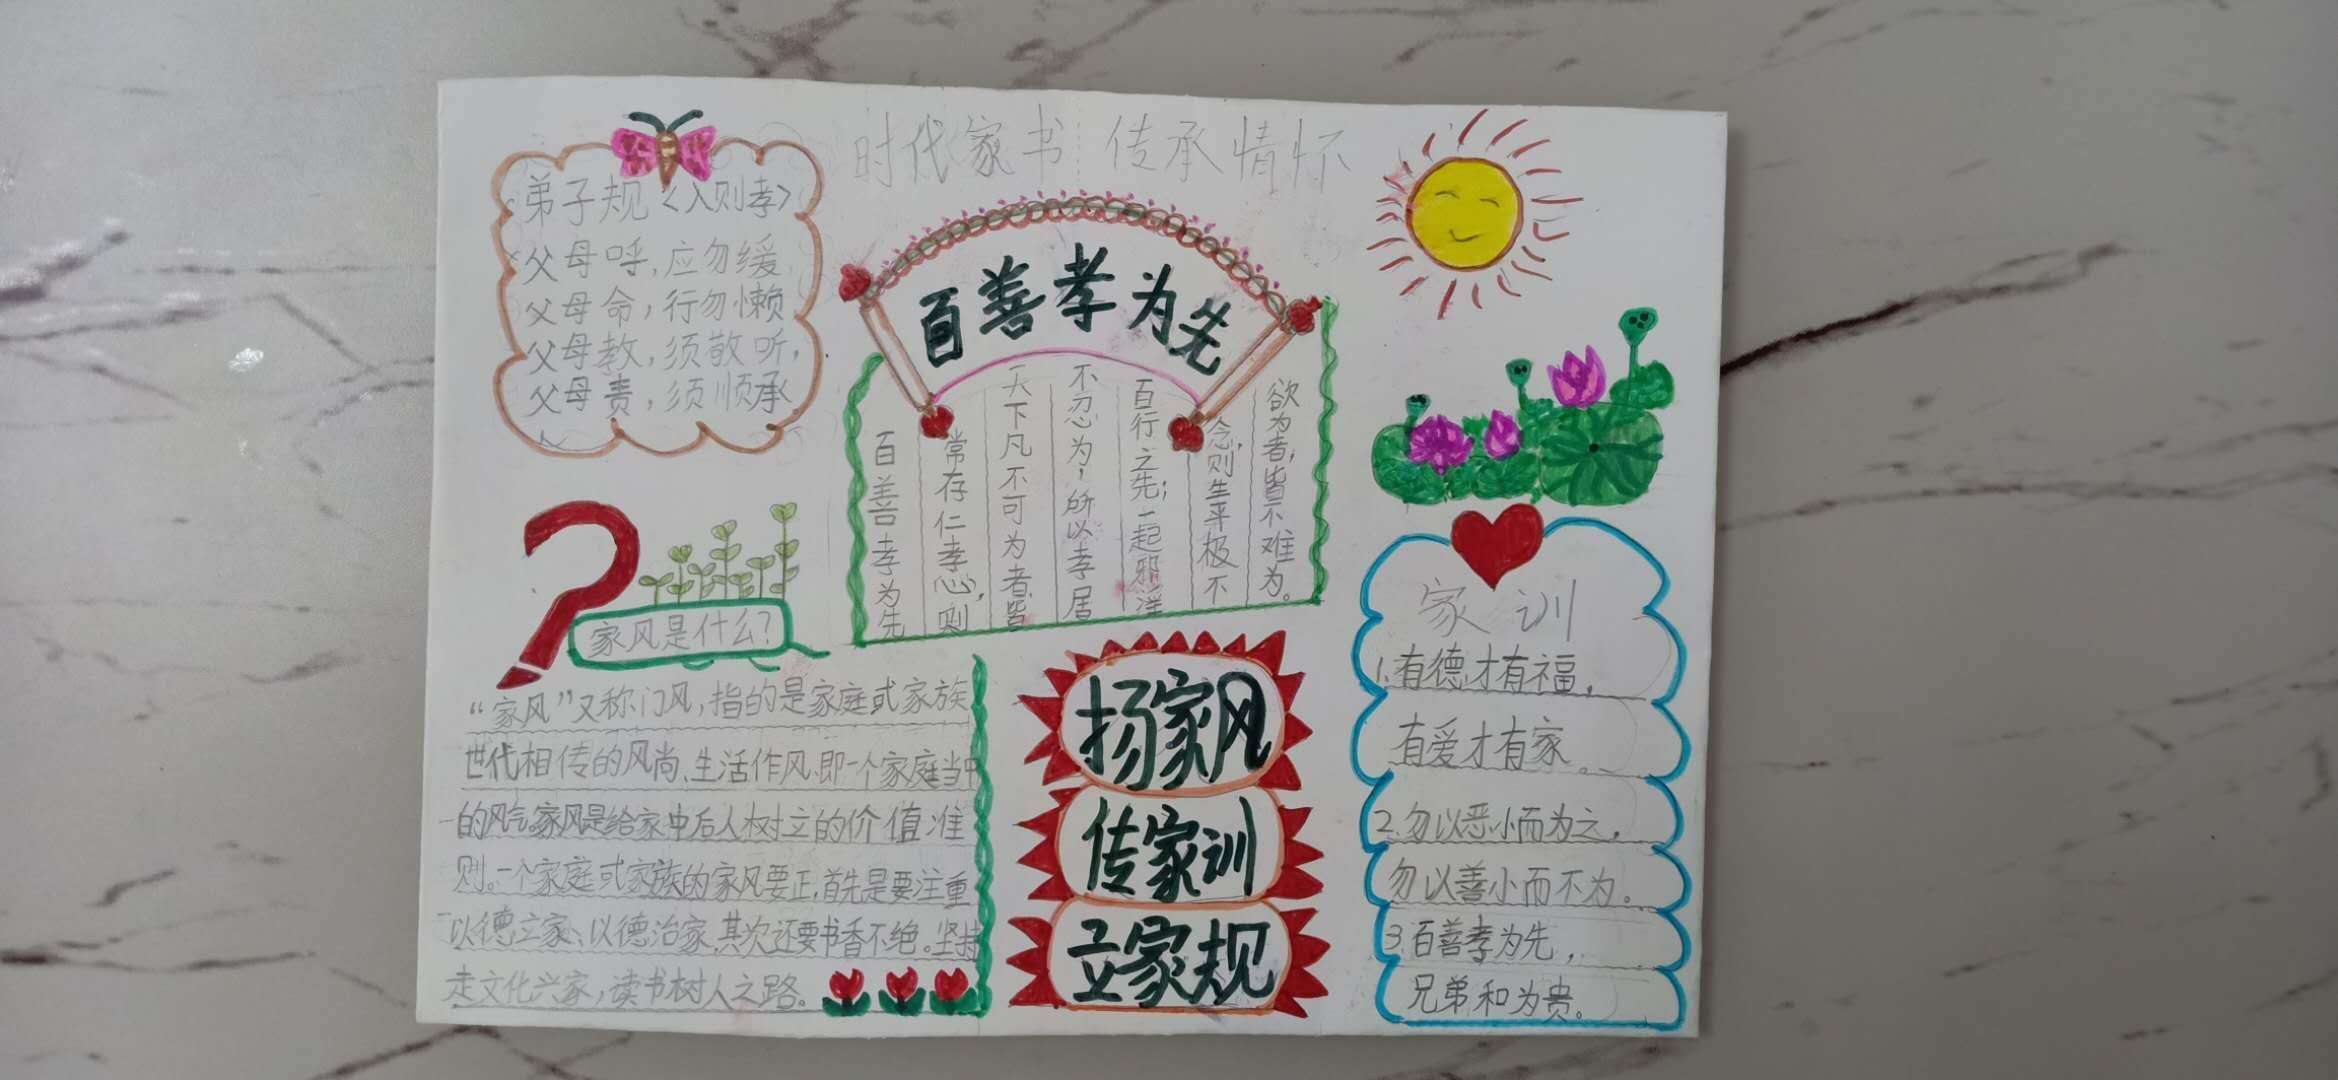 时代家书 传承情怀
弟子规《入则孝》
父母呼,应勿缓,
父母命,行勿懒
父母教,须敬听,
父母责,须顺承
百善孝为先
百善孝为先
常存仁孝心,则
天下凡不可为者,皆
不忍为,所以孝居
百行之先;一起邪淫
念,则生平极不
欲为者,皆不难为。
家风是什么?
“家风”又称门风,指的是家庭或家族
世代相传的风尚、生活作风、即一个家庭当中
的风气。家风是给家中后人树立的价值准
则。一个家庭或家族的家风要正,首先是要注重
以德立家、以德治家,其次还要书香不绝。坚持
走文化兴家,读书树人之路。
扬家风
传家训
立家规
家训
1.有德才有福,
有爱才有家。
2.勿以恶小而为之,
勿以善小而不为。
3.百善孝为先,
兄弟和为贵。